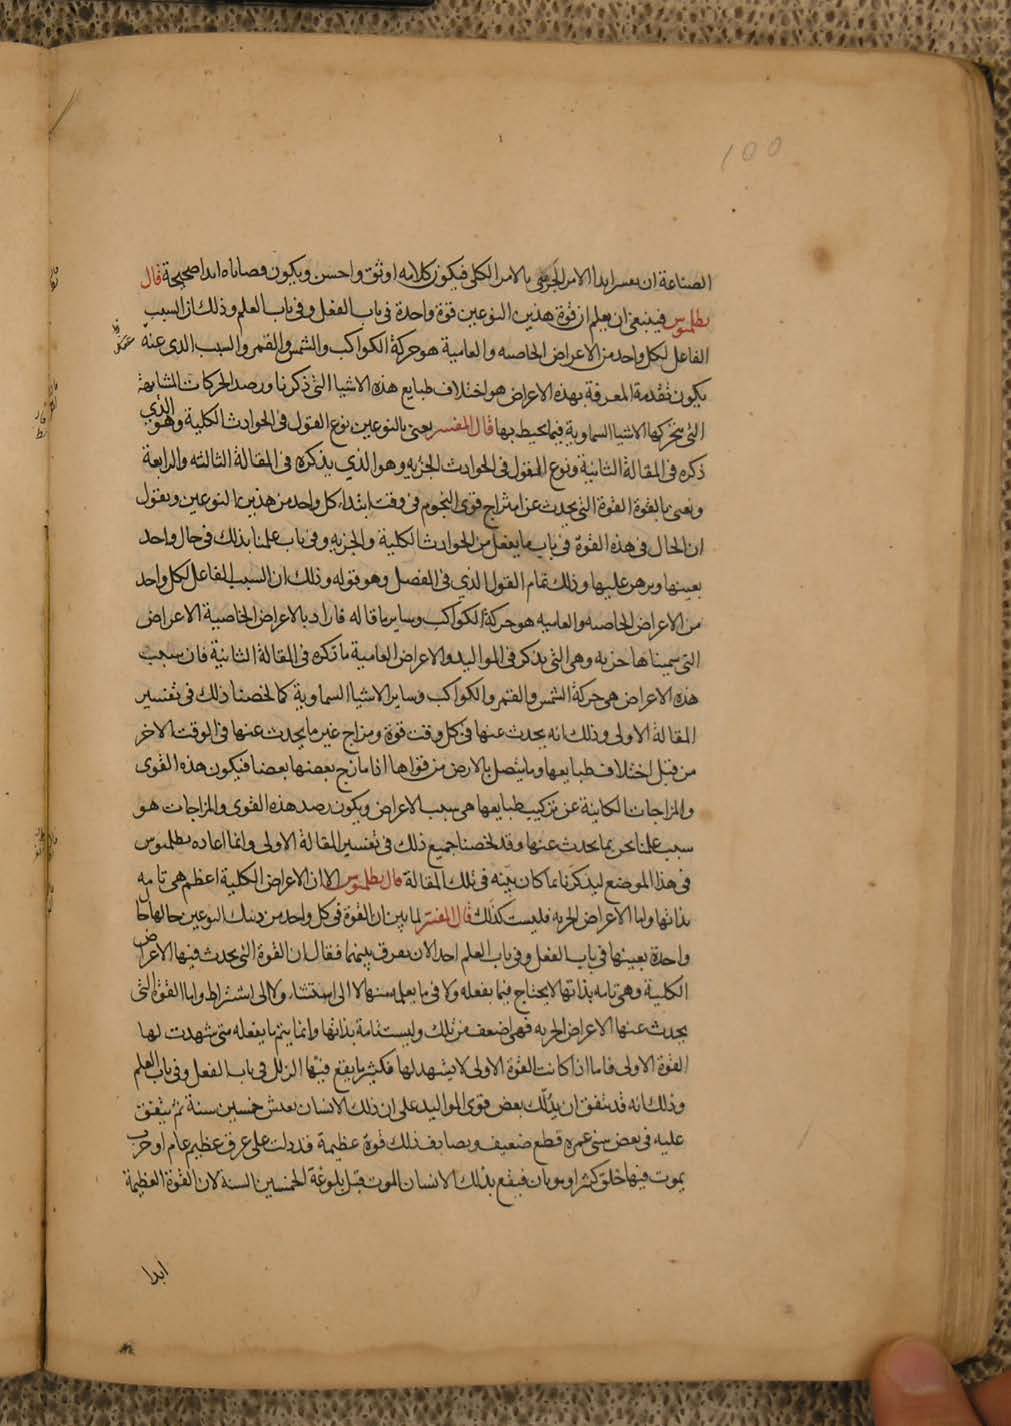 100
الصناعة ان يعسر ابدا الامر الجزئي بالامر الكلي فيكون كلامه اوثق واحسن ويكون قضاياه ابدا صحيحة قال
بطلميوس فينبغي ان يعلم ان قوة هذين النوعين قوة واحدة في باب الفعل وفي باب العلم وذلك ان السبب
الفاعل لكل واحد من الاعراض الخاصه والعامية هو حركة الكواكب والشمس والقمر والسبب الذي عنه
يكون تقدمة المعرفة بهذه الاعراض هو اختلاف طبايع هذه الاشيا التي ذكرنا ورصد الحركات المتشابهة
التي تتحركها الاشيا السماوية فيما يحيط بها قال المفسر يعني بالنوعين نوع القول في الحوادث الكلية وهو الذي
ذكره في المقالة الثانية ونوع القول في الحوادث الجزيه وهو الذي يذكره في المقالة الثالثه والرابعة
ويعني بالقوة القوة التي يحدث عن امتزاج قوى النجوم في وقت ابتداء كل واحد من هذين النوعين ويقول
ان الحال في هذه القوة في باب ما يفعل من الحوادث الكلية والجزيه وفي باب علمنا بذلك في حال واحد
بعينها وبرهن عليها وذلك تمام القول الذي في الفصل وهو قوله وذلك ان السبب الفاعل لكل واحد
من الاعراض الخاصه والعاميه هو حركة الكواكب وساير ما قاله فاراد بالاعراض الخاصية الاعراض
التي سميناها جزيه وهي التي يذكر في المواليد والاعراض العامية ما ذكره في المقالة الثانية فان سبب
هذه الاعراض هي حركة الشمس والقمر والكواكب وساير الاشيا السماوية كما لخصنا ذلك في تفسير
المقالة الاولى وذلك انه يحدث عنها في كل وقت قوة ومزاج غير ما يحدث عنها في الوقت الاخر
من قبل اختلاف طبايعها وما يتصل بالارض من قواها اذا مازج بعضها بعضا فيكون هذه القوى
والمزاجات الكاينة عن تركيب طبايعها هي سبب الاعراض ويكون رصد هذه القوى والمزاجات هو
سبب علمنا نحن بما يحدث عنها وقد لخصنا جميع ذلك في تفسير المقالة الاولى وانما اعاده بطلميوس
في هذا الموضع ليذكرنا بما كان بيّنه في تلك المقالة قال بطلميوس الا ان الاعراض الكلية اعظم هي تامه
بذاتها واما الاعراض الجزيه فليست كذلك قال المفسر لما بين ان القوة في كل واحد من ذينك النوعين حالها حال
واحدة بعينها في باب الفعل وفي باب العلم اخذ الان يفرق بينهما فقال ان القوة التي يحدث فيها الاعراض
الكلية وهي تامه بذاتها لا يحتاج فيما يفعله ولا في ما يعلم منها لا الى استثناء ولا الى اشتراط واما القوة التي
يحدث عنها الاعراض الجزيه فهي اضعف من تلك وليست تامة بذاتها وانما يتم ما يفعله متى شهدت لها
القوة الاولى فاما اذا كانت القوة الاولى لا يشهد لها فكثيرا ما يقع فيها الزلل في باب الفعل وفي باب العلم
وذلك انه قد يتفق ان يدلّك بعض قوى المواليد على ان ذلك الانسان يعيش خمسين سنة ثم يتفق
عليه في بعض سني عمره قطع ضعيف ويصادف ذلك قوة عظيمة قد دلت على غرق عظيم عام او حرب
يموت فيها خلق كثير او موتان فيقع بذلك الانسان الموت قبل بلوغة الخمسين السنة لان القوة العظيمة
ابدا